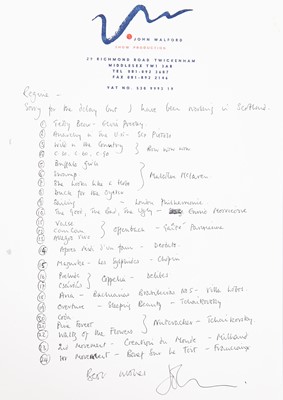 JOHN WALFORD
SHOW PRODUCTION
27 RICHMOND ROAD TWICKENHAM
MIDDLESEX TW1 3AB
TEL 081-892
FAX 081-892
VAT NO:
Regine -
Sorry for the delay but I have been working in Scotland.
① Tally Bow - Elvis Presley
② Anarchy in the U.K - Sex Pistols
③ in the Country
④ C.30, C.60, C.90 } Bow wow wow
⑤ Buffalo Girls
⑥ Swamp
⑦ She looks like a Hobo } Malcolm McLaren
⑧ Duck for the Oyster
⑨ Sailing - London Philharmonic
⑩ The Good, The Bad, The Ugly - Ennio Morricone
⑪ Valse
⑫ Can Can } Offenbach - Gaité Parisienne
⑬ Allegro
⑭ Apres Midi d'un Faun - Debussy.
⑮ Mazurka - Les Sylphides - Chopin
⑯ Prelude
⑰ Czardas } Coppelia - Delibes
⑱ Aria - Bachianas Brasileiras No5 - Villa Lobos.
⑲ Overture - Sleeping Beauty - Tchaikovsky
⑳ Coda
㉑ Pine Forest } Nutcracker - Tchaikovsky
㉒ Waltz of the Flowers
㉓ 2nd Movement - Creation du Monde - Milhaud
㉔ 1st Movement - Beuf Sur le Toit - Francaux
Best wishes